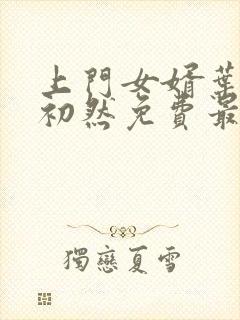 上門女婿葉
初然免費最
獨戀夏雪